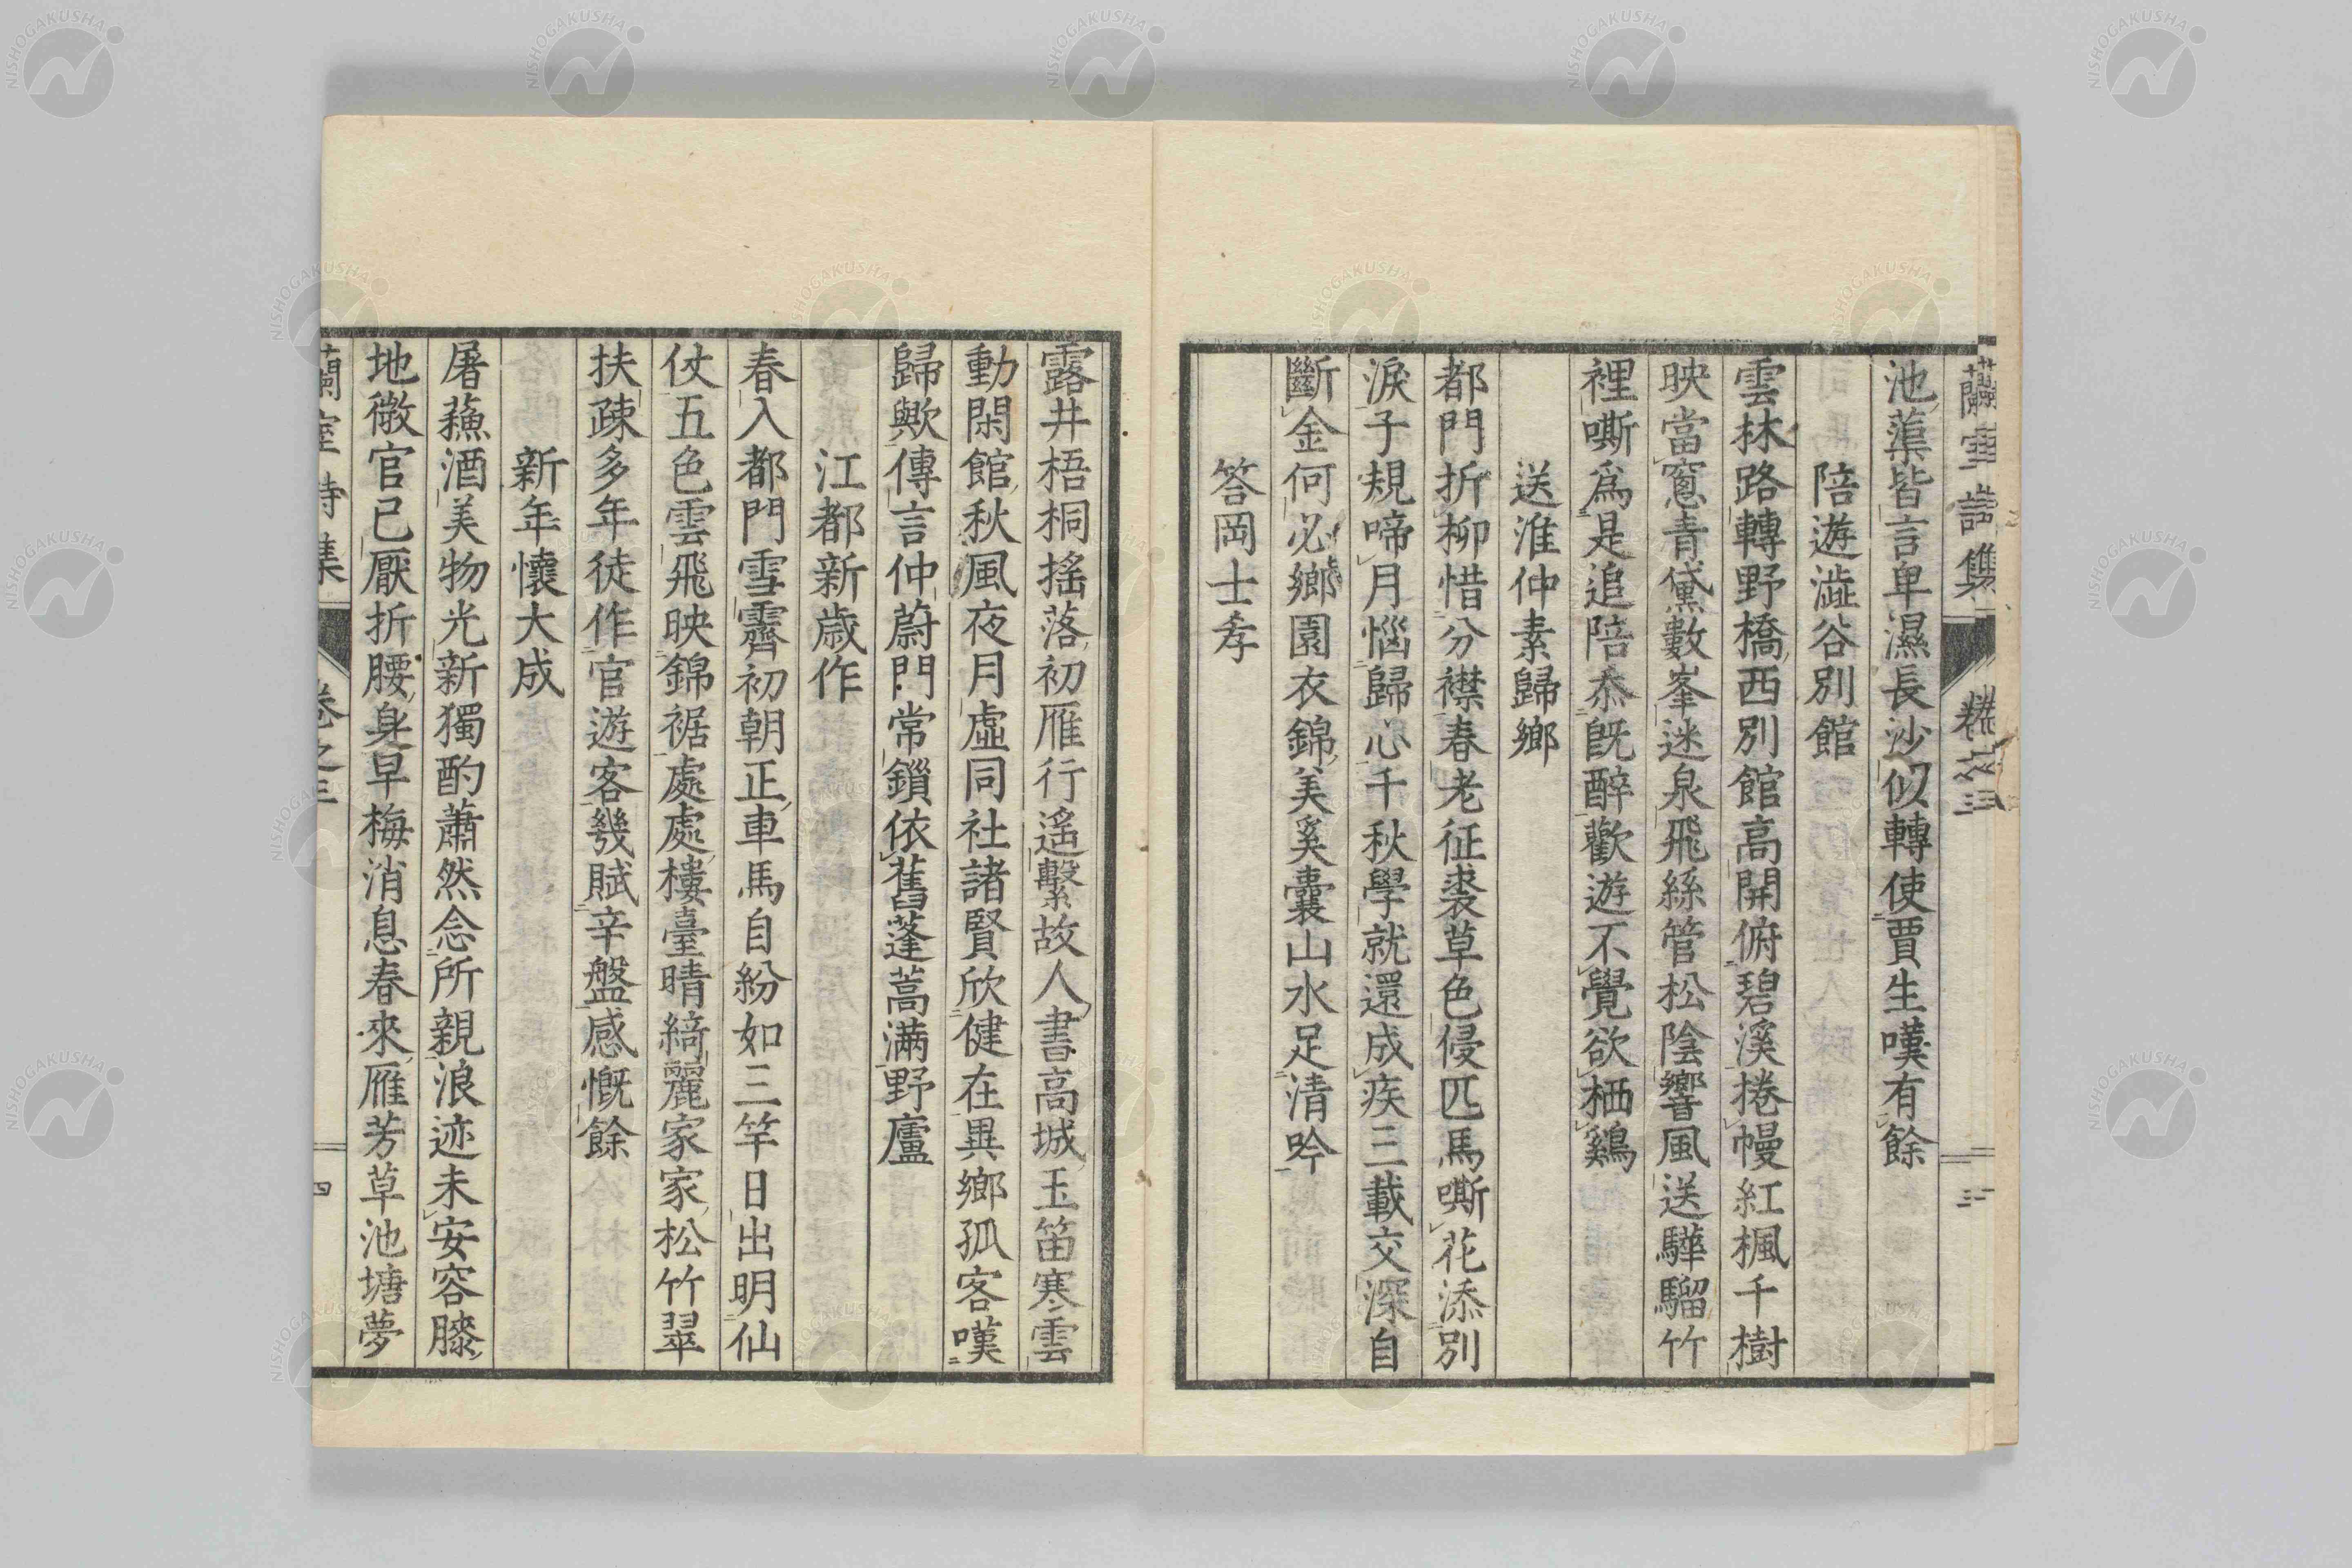 蘭室詩集 卷之三 三
池蕖皆言卑濕長沙似轉使賈生嘆有餘
陪遊澁谷別館
雲林路轉野橋西別館高開俯碧溪捲幔紅楓千樹
映當窻青黛數峯迷泉飛絲管松陰響風送驊騮竹
裡嘶爲是追陪忝旣醉歡遊不覺欲栖鷄
送淮仲素歸鄉
都門折柳惜分襟春老征裘草色侵匹馬嘶花添別
淚子規啼月惱歸心千秋學就還成疾三載交深自
斷金何必鄉園衣錦美奚囊山水足清吟
答岡士孝
露井梧桐搖落初雁行遙繫故人書高城玉笛寒雲
動閑館秋風夜月虛同社諸賢欣健在異鄉孤客嘆
歸歟傳言仲蔚門常鎖依舊蓬蒿滿野廬
江都新歲作
春入都門雪霽初朝正車馬自紛如三竿日出明仙
仗五色雲飛映錦裾處處樓臺晴綺麗家家松竹翠
扶疎多年徒作官遊客幾賦辛盤感慨餘
新年懷大成
屠蘓酒美物光新獨酌蕭然念所親浪迹未安容膝
地微官已厭折腰身早梅消息春來雁芳草池塘夢
蘭室詩集 卷之三 四
NISHOGAKUSHA